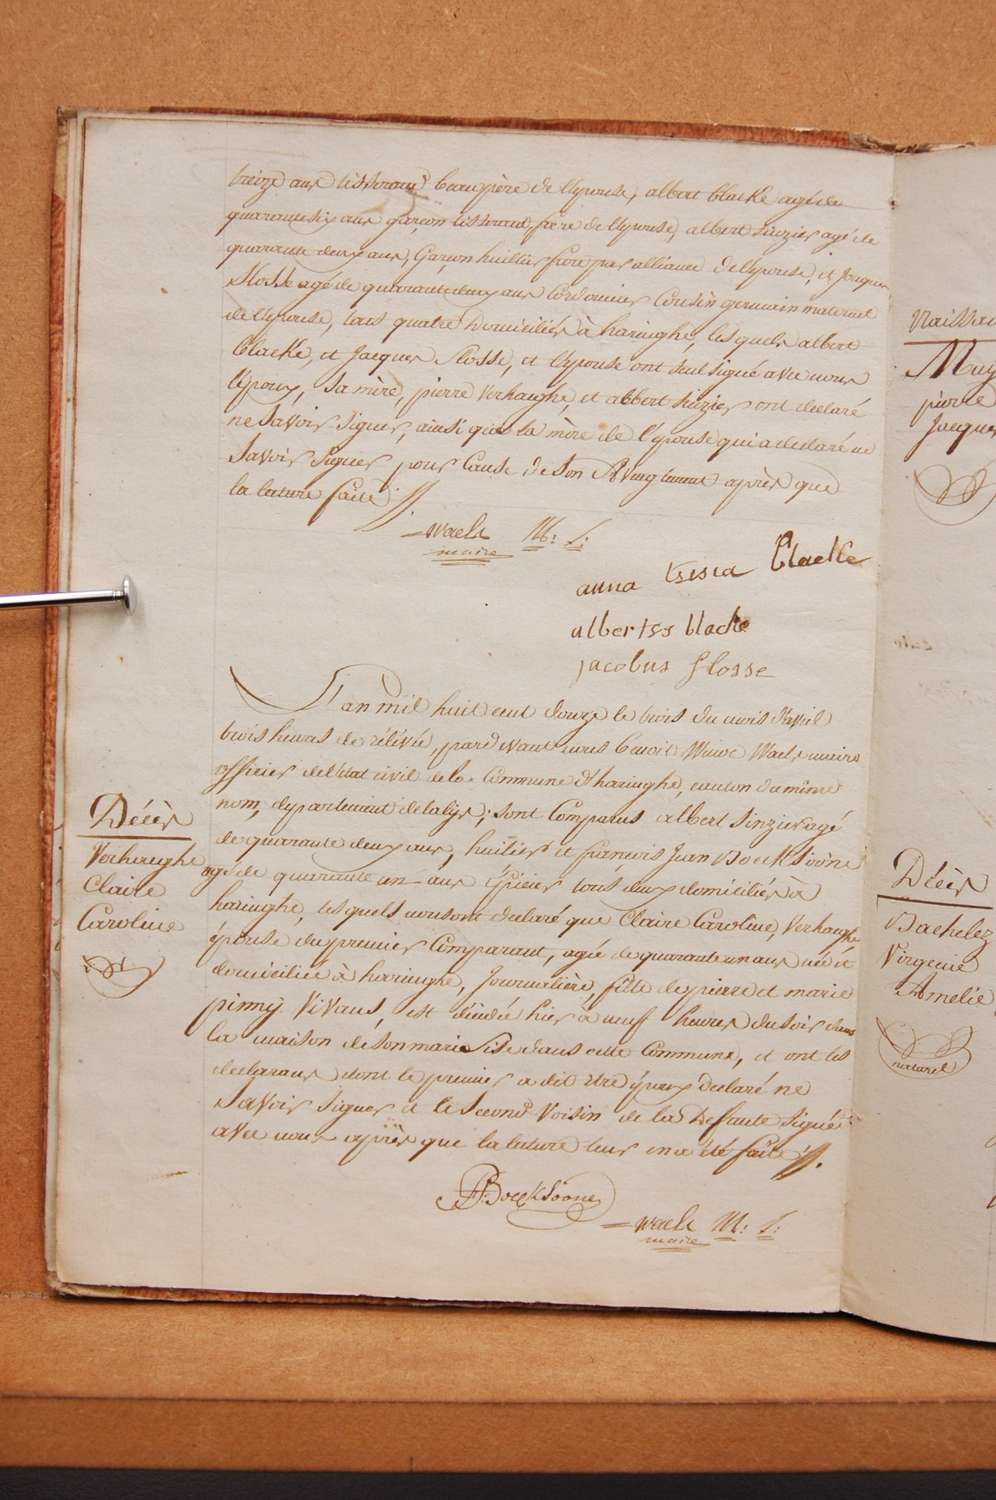 treize ans tisserand beau père de l'épouse, albert Clacke agé de
quarante six ans garçon tisserand frère de l'épouse, albert Sinzier agé de
quarante deux ans, Garçon huilier frère par alliance de l'épouse, et Jacques
Flosse agé de quarante deux ans Cordonnier Cousin germain maternel
de l'épouse, tous quatre Domiciliés à haringhe, lesquels albert
Clacke, et Jacques Flosse, et l'épouse ont seul signé avec nous
l'époux, sa mère, pierre verhaeghe, et albert Sinzier ont declaré
ne savoir signer, ainsi que la mère de l'épouse qui a declaré ne
savoir signer pour Cause de son Aveuglement après que
la lecture faite
Waels M: S:
maire
anna Clacke
albertus blacke
jacobus flosse
L'an mil huit cent douze le trois du mois d'avril
trois heures de rélévée, pardevant nous benoit Winoc Waels maire
officier de l'état civil de la Commune d'haringhe, canton du même
nom, departement de la lys; sont Comparus albert Sinzier agé
de quarante deux ans, huilier et françois Jean Boeksoone
agé de quarante un ans épicier tous deux domiciliés à
haringhe, lesquels nous ont declaré que Claire Caroline, Verhaeghe
épouse du premier Comparant, agée de quarante un ans née et
domiciliée à haringhe, Journalière, fille de pierre et marie
pinny Vivans, est décédée hier à neuf heures du soir dans
la maison de son marie sise dans cette Commune, et ont les
declarans dont le premier a dit être époux declaré ne
savoir signer et le second Voisin de la Deffunte signé
avec nous après que la lecture leur en a été faite
Décès
Verhaeghe
Claire
Caroline
Boeksoone
Waels M: S:
maire
Naissan
Muy
pierre
Jacques
Décès
Bachelez
Virgenie
Amelie
naturel